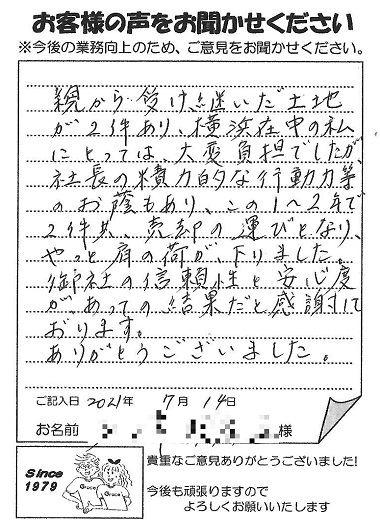 お客様の声をお聞かせください
※今後の業務向上のため、ご意見をお聞かせください。
親から受け継いだ土地
が2件あり、横浜在中の私
にとっては、大変負担でしたが、
社長の積力的な行動力等
のお蔭もあり、この1〜2年で
2件共、売却の運びとなり、
やっと肩の荷が、下りました。
御社の信頼性と安心度
が、あっての結果だと感謝して
おります。
ありがとうございました。
ご記入日 2021年 7月 14日
お名前 様
Since
1979
Grace
Grace
貴重なご意見ありがとうございました!
今後も頑張りますので
よろしくお願いいたします